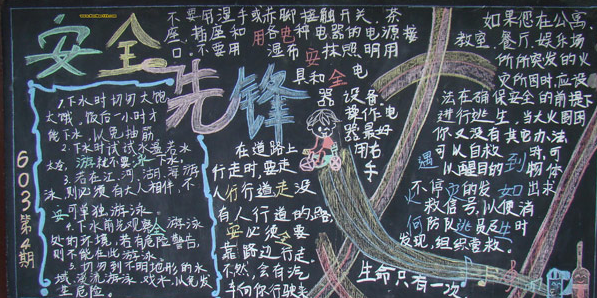 安全
先锋
603第4期
1.下水时切勿太饱
太饿。饭后一小时才
能下水,以免抽筋
2.下水时试试水温若水
太冷,游就不要冰下水;
3.若在江、河、湖、海游
泳,则必须有大人相伴,不
安可单独游泳。
4.下水前先观察全游泳
处的环境,若有危险警告,
则不能在此游泳。
5.切勿到不明地形的水
域、漂流游泳、戏水,以免发
生危险。
不要用湿手或赤脚接触开关、茶
座、插座和用各种电器的电源接
口。不要用湿布抹照明用
具和全电
器设备。
操作电
器最好
用右
手
在道路上
行走时,要走
人行行道走没
有人行道的路,
安必须全要
靠路边行走。
不然,会有汽
车向你行驶来
如果您在公寓、
教室、餐厅、娱乐场
所所突发的火
灾所困时,应设
法在确保安全的前提下
进行逃生,当火圈围
你又没有其它办法
可以自救时,可
遇以醒目的到物体
不停页的发如出求
救信号,以便消
何防队逃员及生时
发现,组织营救。
生命只有一次